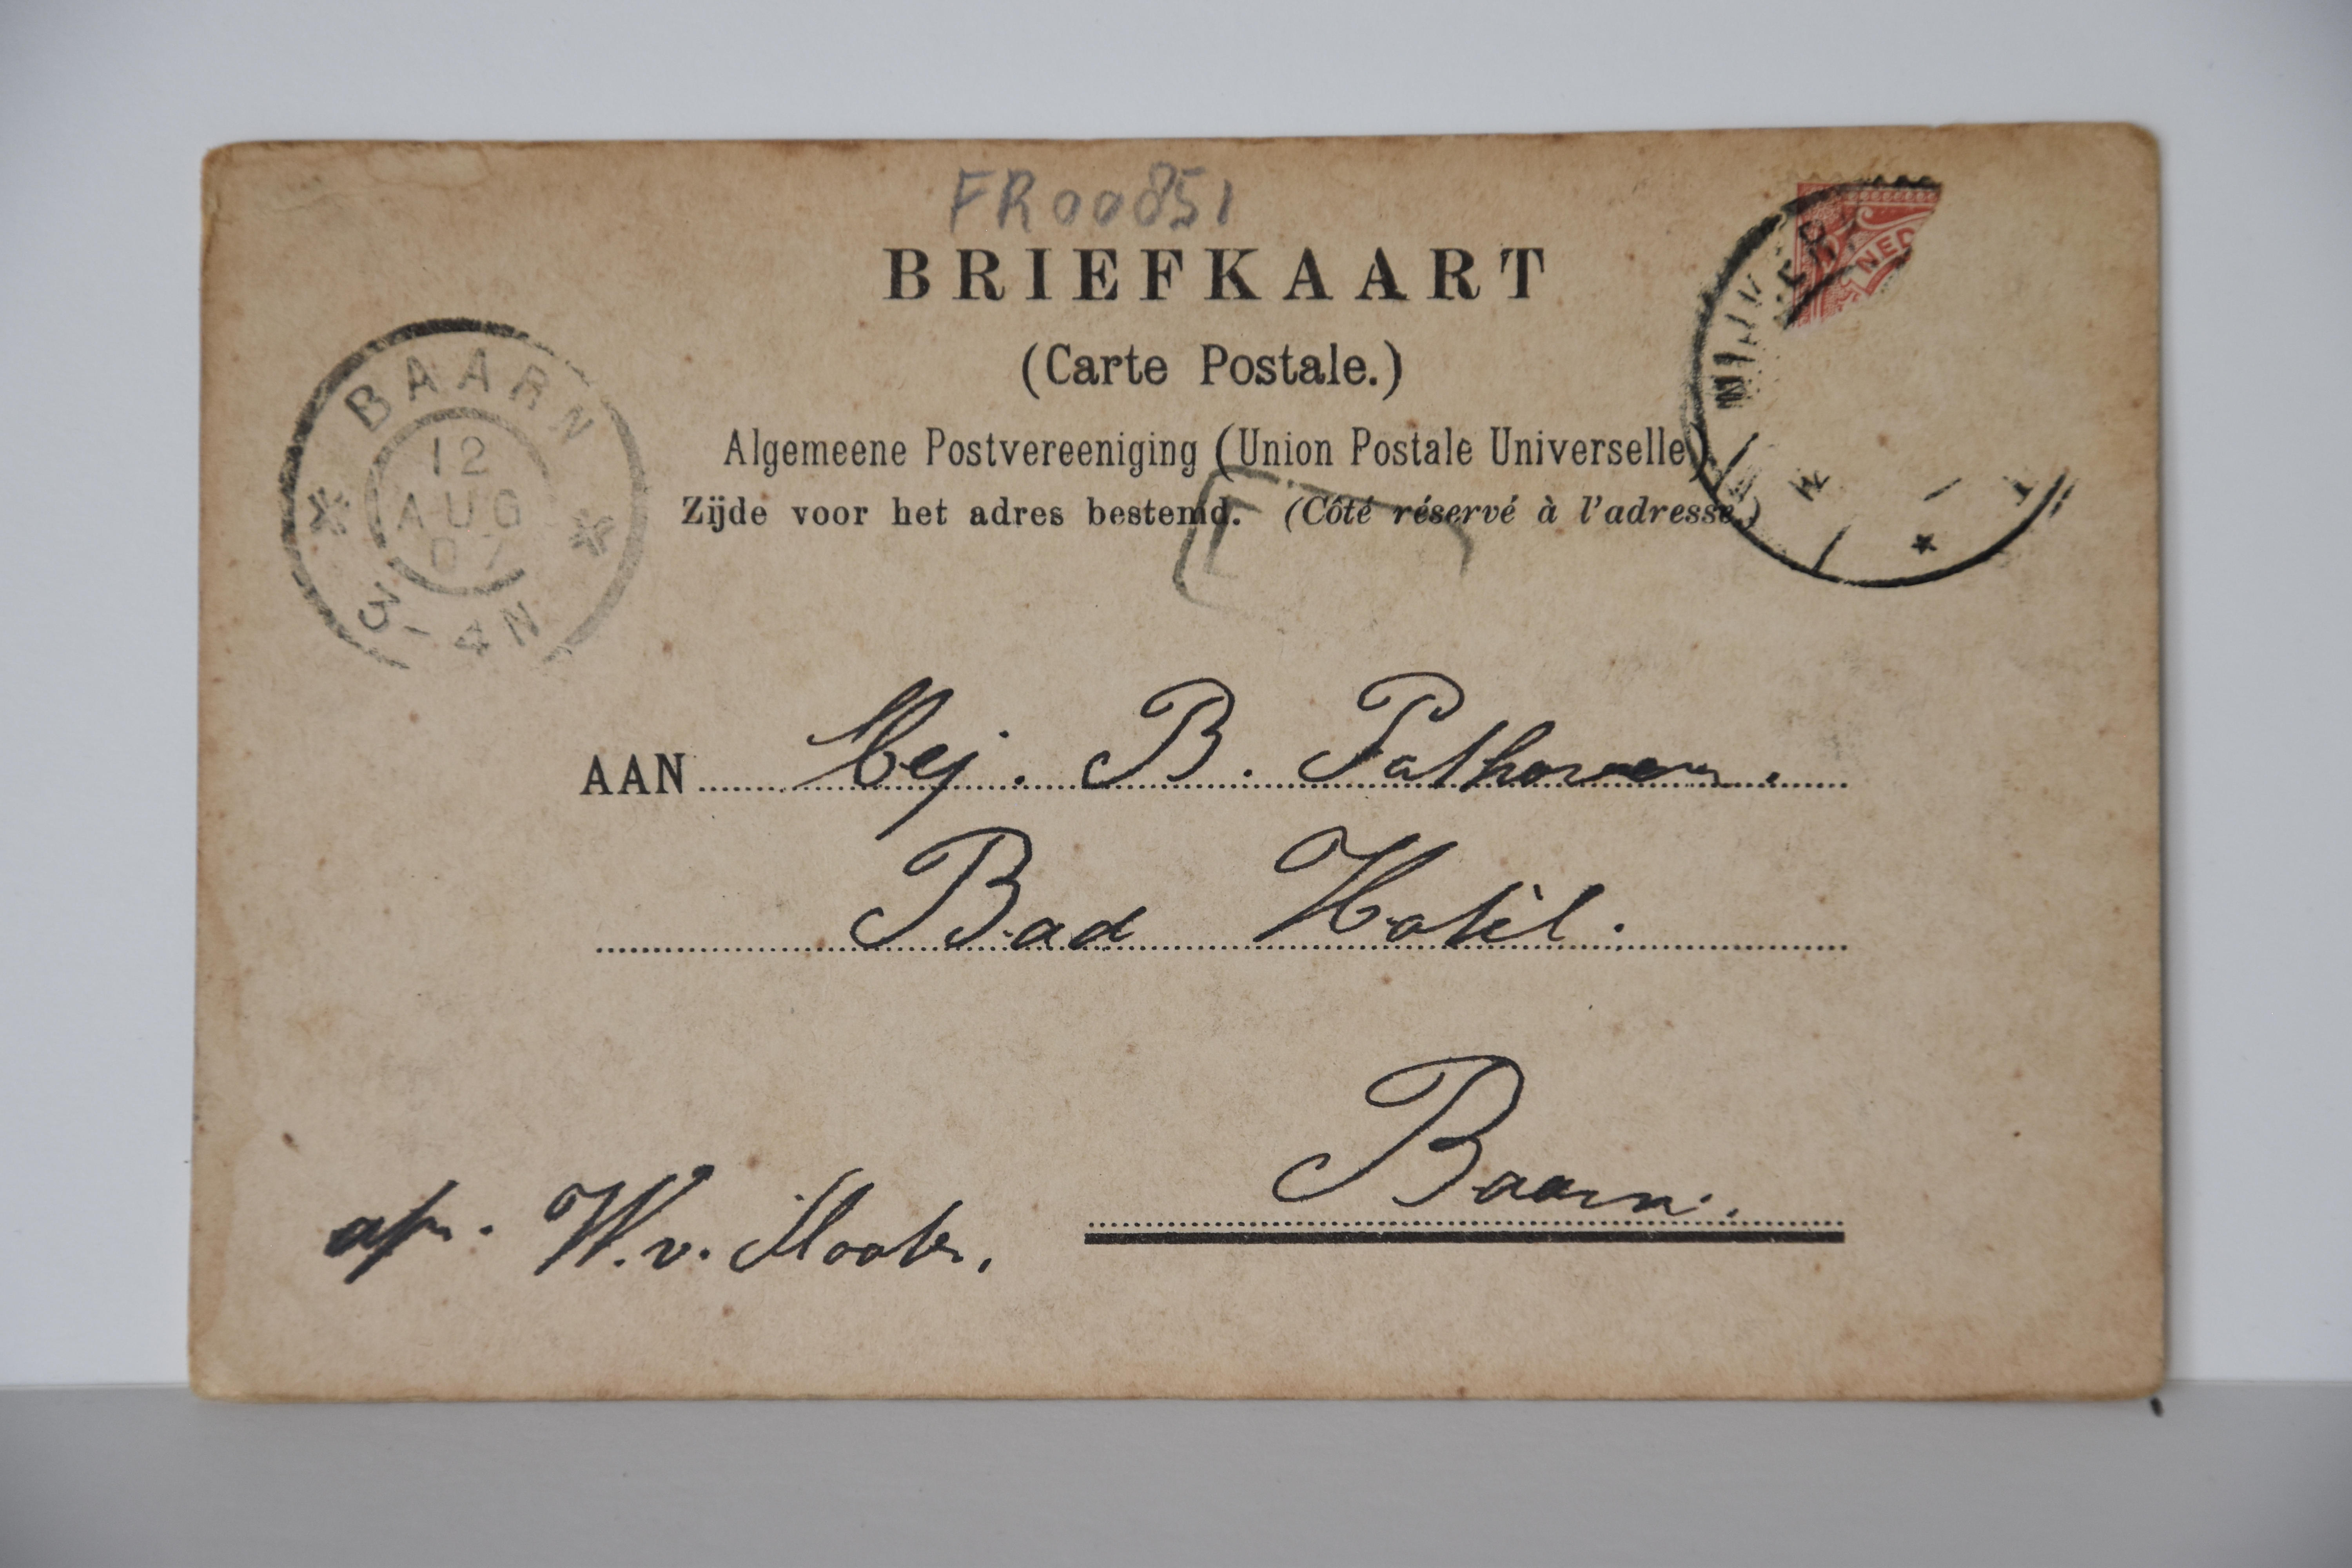 FR00851
BRIEFKAART
(Carte Postale.)
Algemeene Postvereeniging (Union Postale Universelle)
Zijde voor het adres bestemd. (Côté réservé à l'adresse.)
BAARN
12
AUG
07
3-4N
NED
NIJKERK
AAN Mej. B.
Bad Hotèl.
Baarn.
afz. W. v.